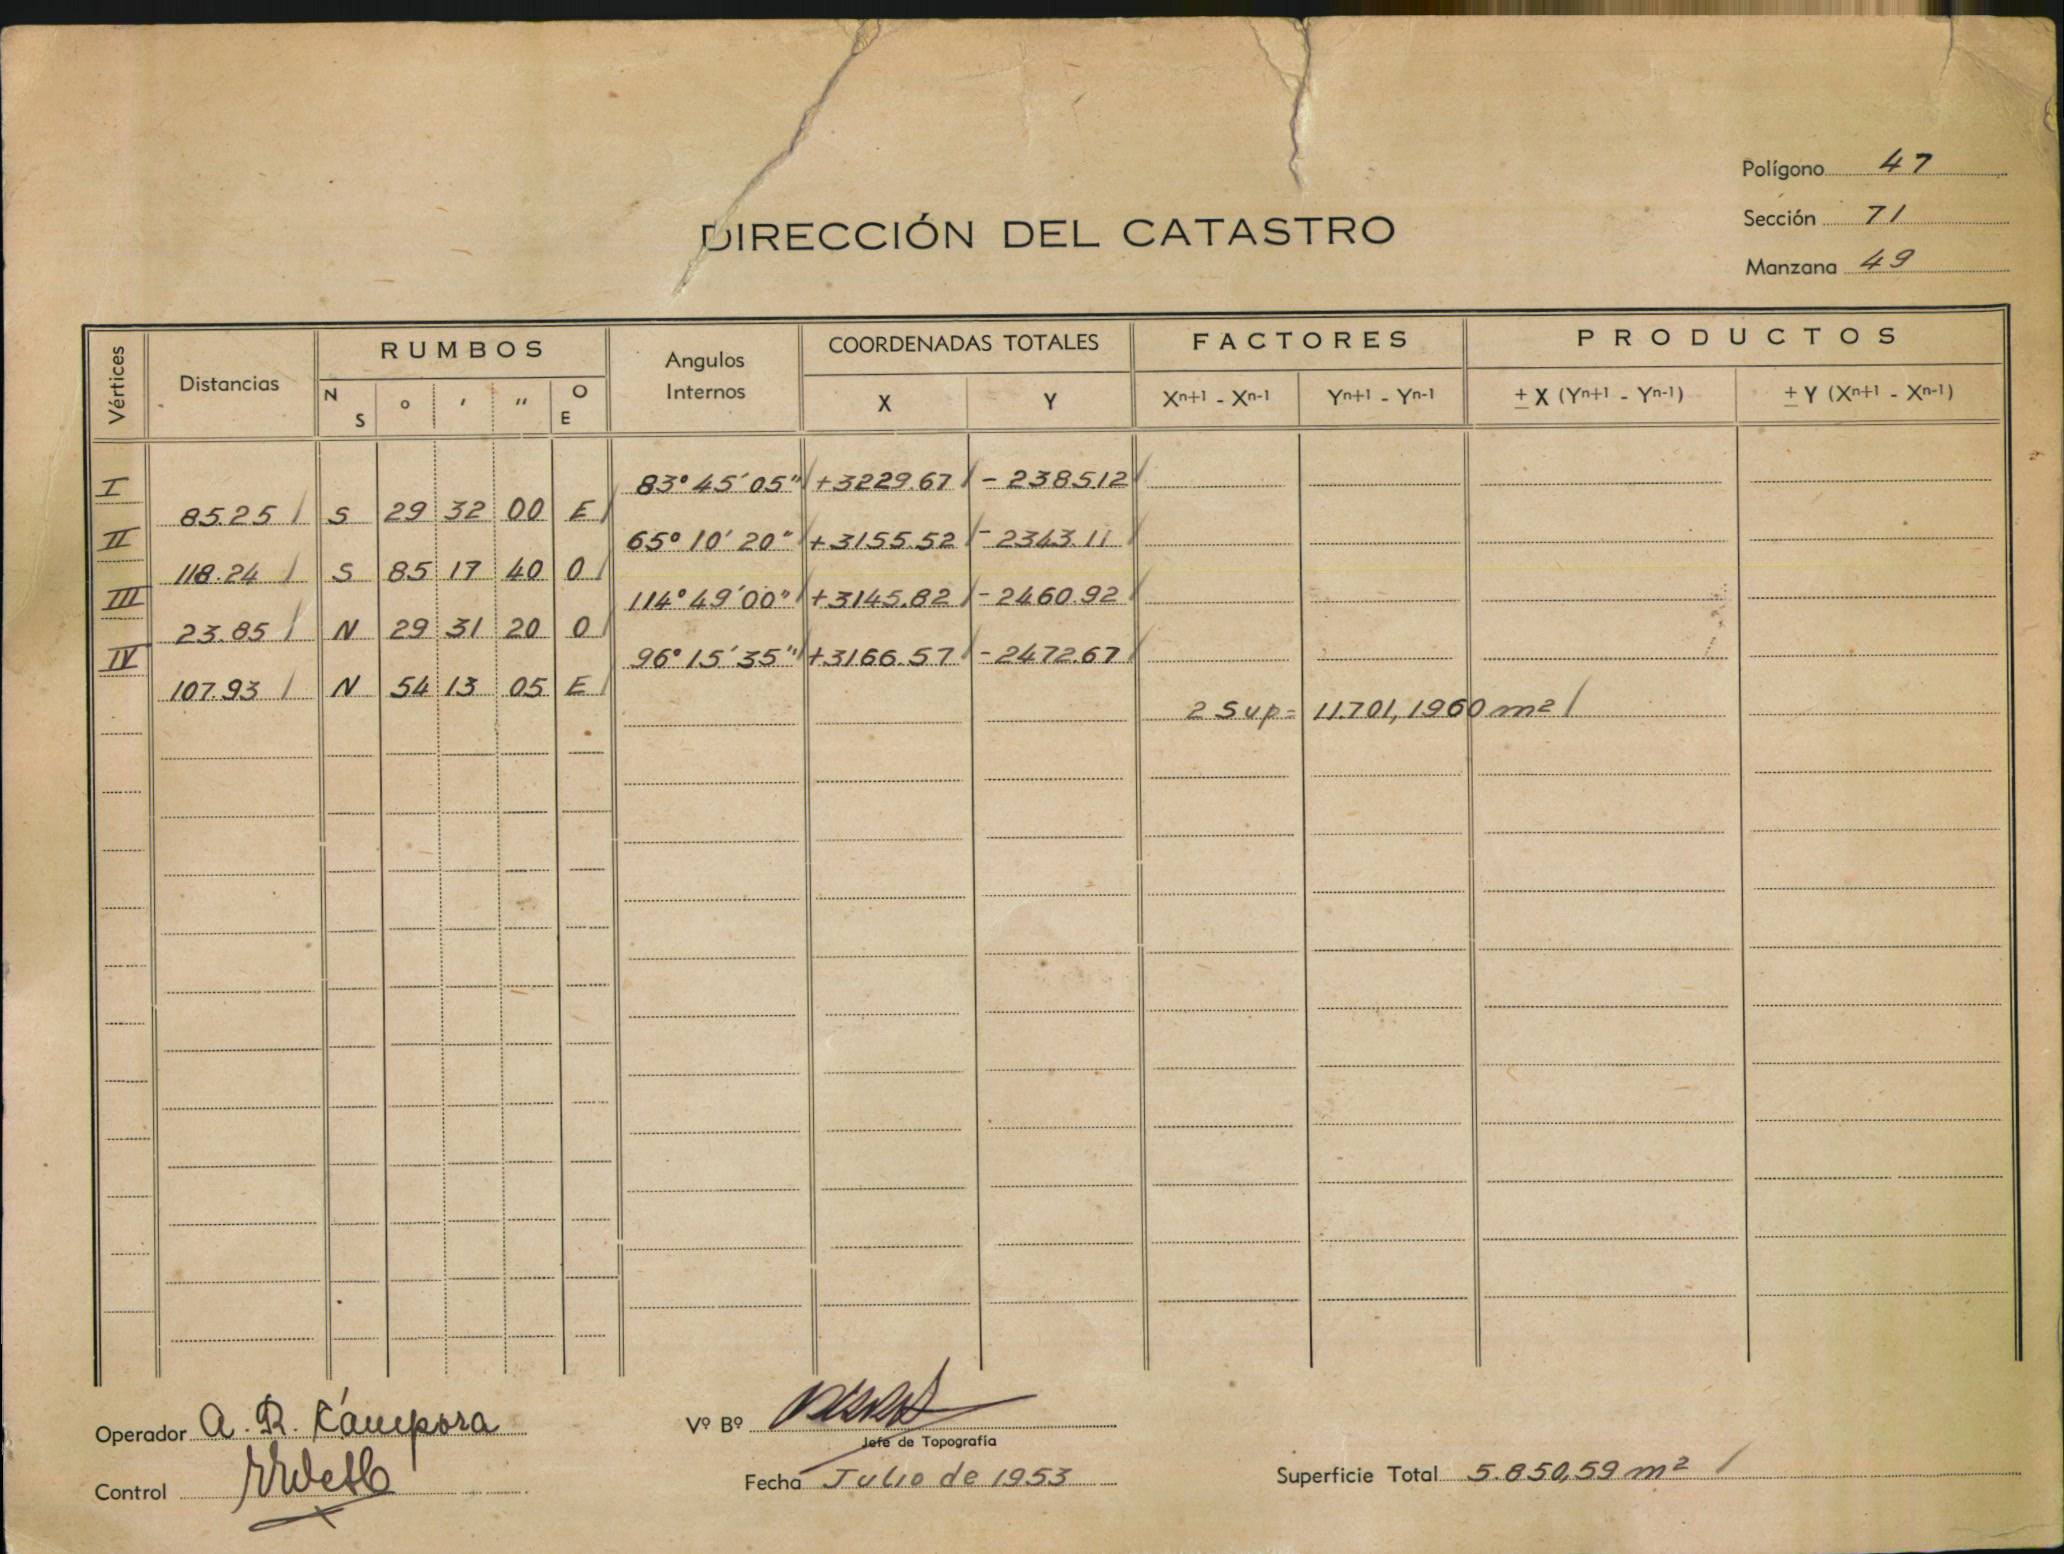 Polígono 47
DIRECCIÓN DEL CATASTRO
Sección 71
Manzana 49
Vértices Distancias RUMBOS Angulos Internos COORDENADAS TOTALES FACTORES PRODUCTOS
N S ° ' " O E X Y Xn+1 - Xn-1 Yn+1 - Yn-1 ± X (Yn+1 - Yn-1) ± Y (Xn+1 - Xn-1)
I 83° 45' 05" +3229.67 - 2385.12
85.25 S 29 32 00 E
II 65° 10' 20" +3155.52 - 2343.11
118.24 S 85 17 40 O
III 114° 49' 00" +3145.82 - 2460.92
23.85 N 29 31 20 O
IV 96° 15' 35" +3166.57 - 2472.67
107.93 N 54 13 05 E
2 Sup = 11.701,1960 m2
Operador A. R. Cámpora
Vº Bº
Jefe de Topografía
Control
Fecha Julio de 1953
Superficie Total 5.850,59 m2